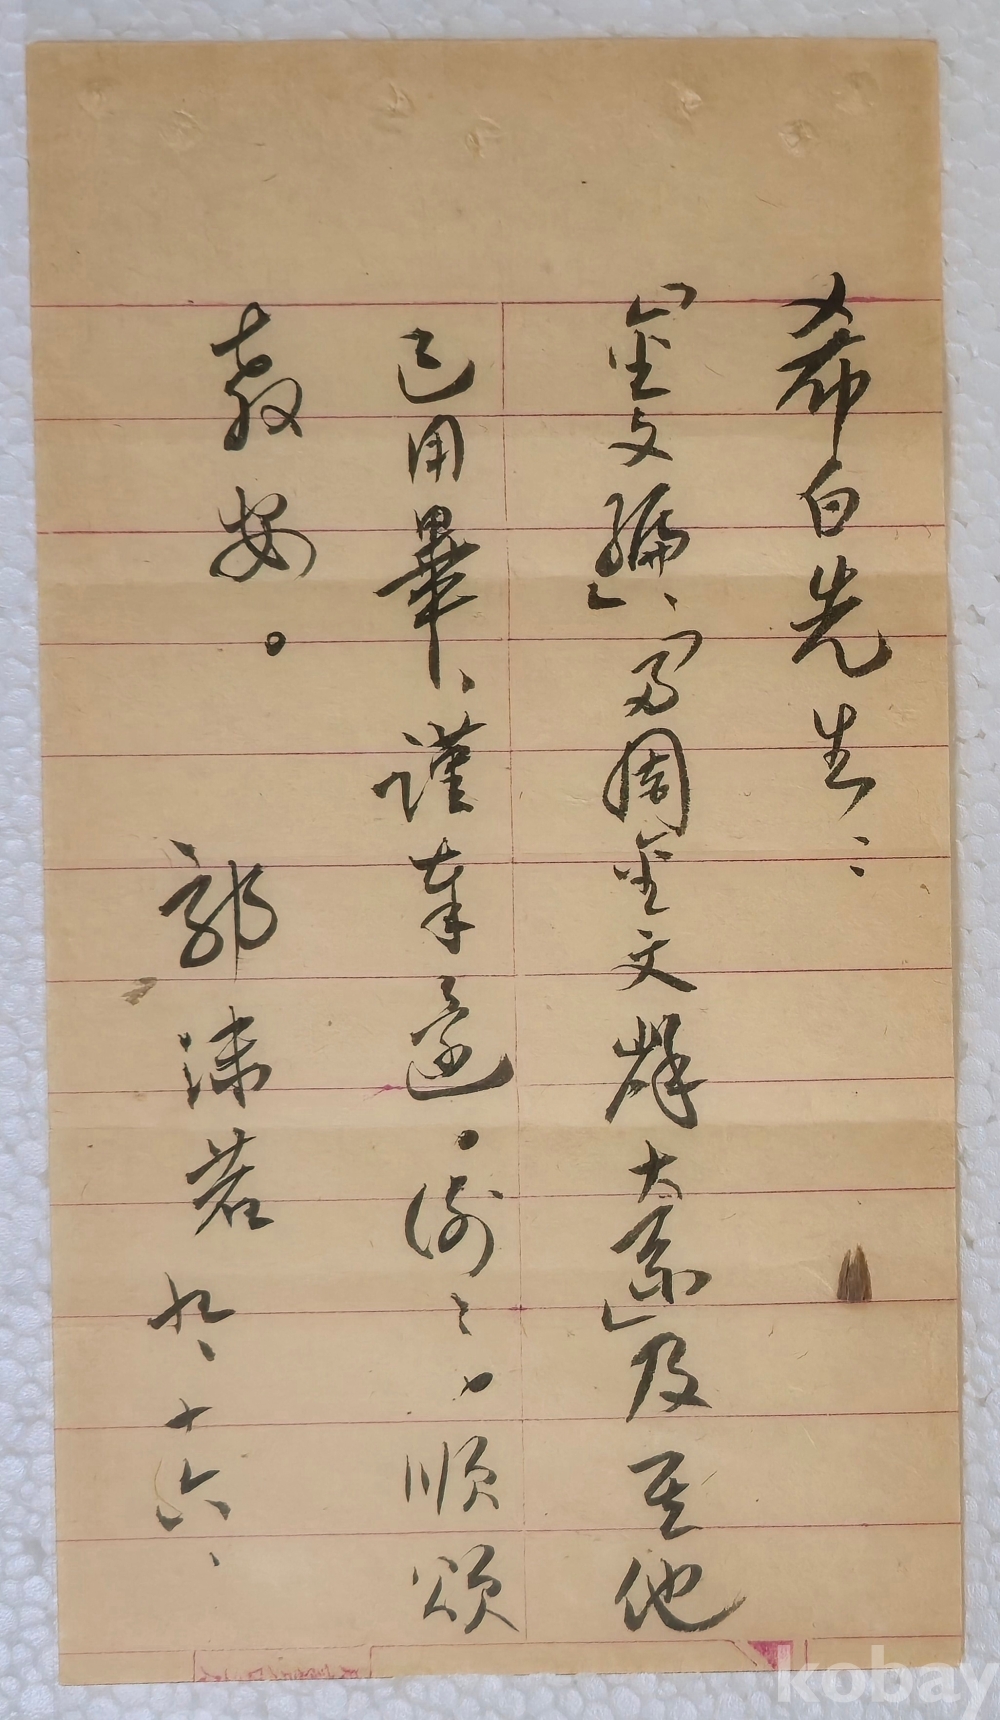 希白先生：
「金文編」、「两周金文辞大系」及其他
已用畢、謹奉還。謝々、順頌
教安。
郭沫若 九、十六、
kobay